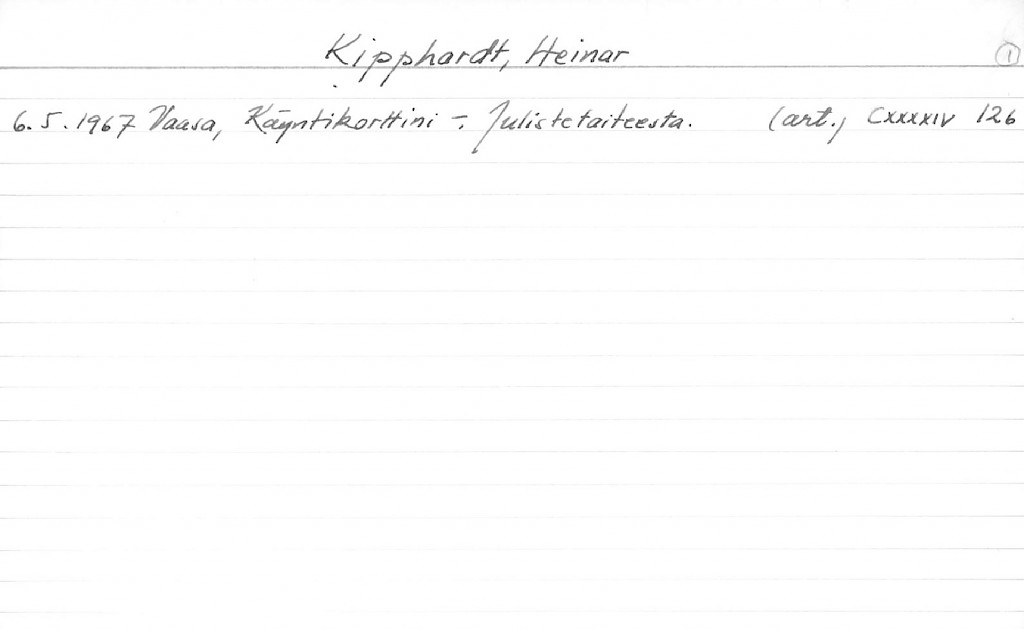 Kipphardt, Heinar 1
6.5.1967 Vaasa, Käyntikorttini -. Julistetaiteesta. (art.) CXXXXIV 126